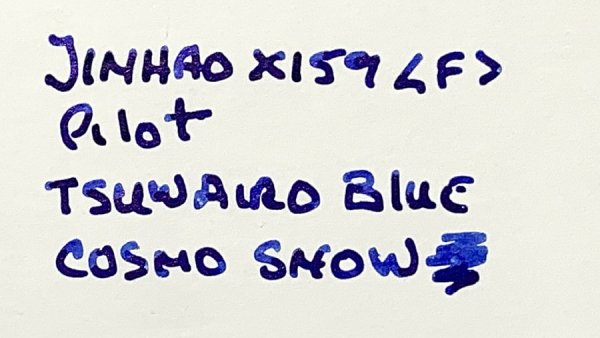 JINHAO X159 <F>
Pilot
TSUWAIRO BLUE
COSMO SNOW